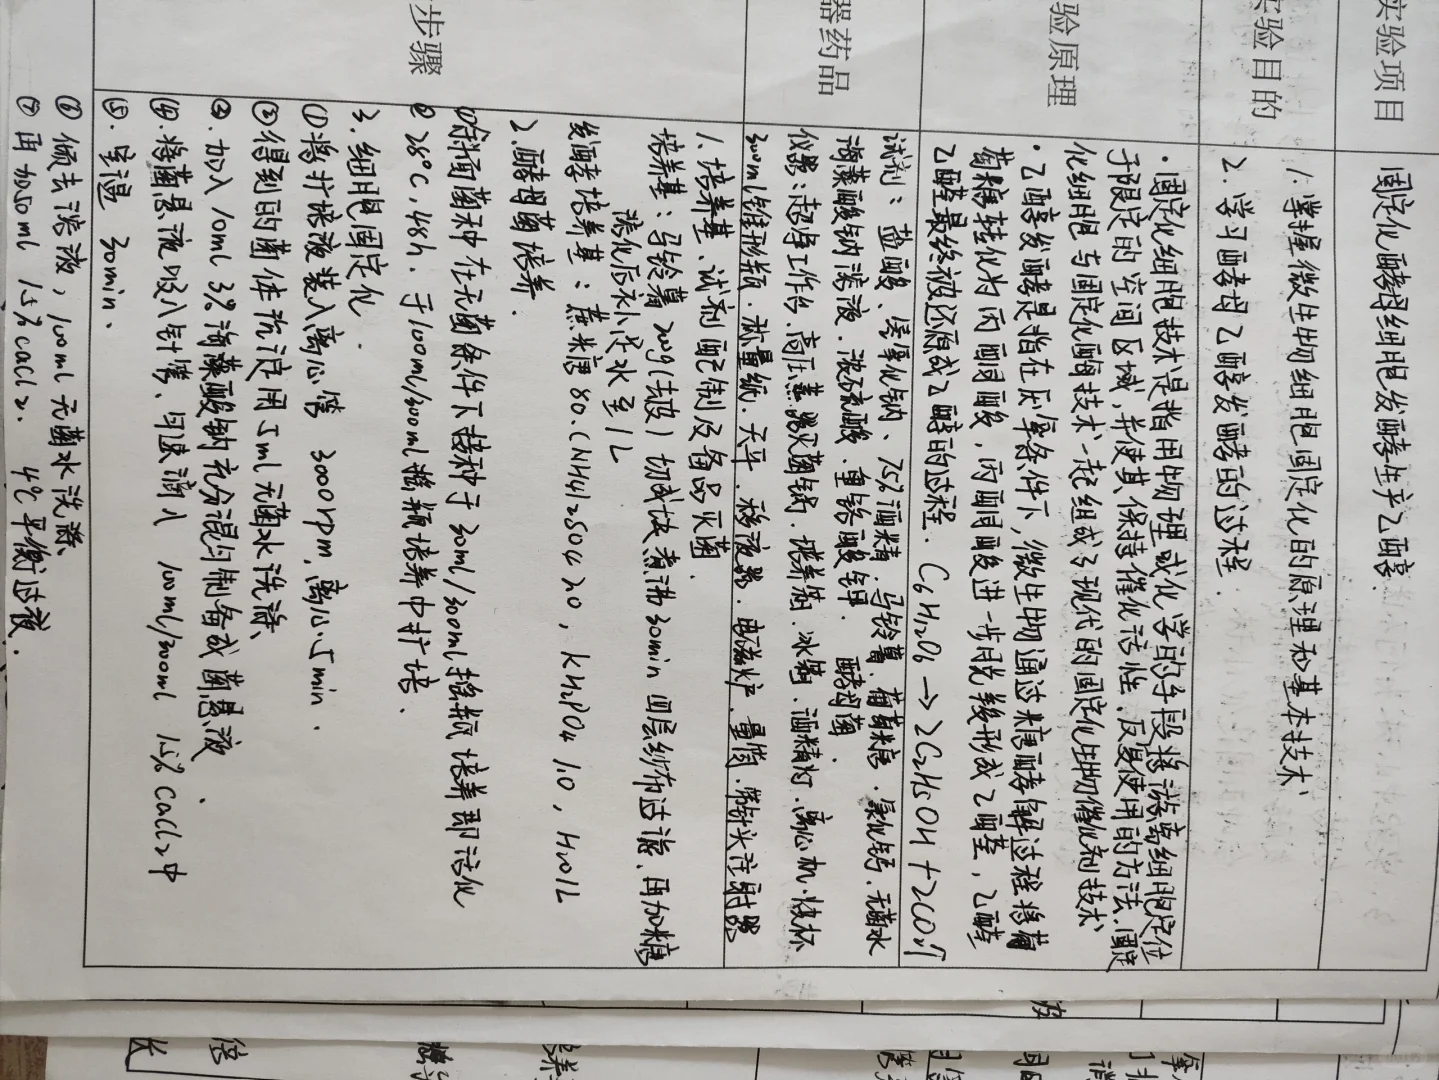 实验项目
固定化酵母细胞发酵生产乙醇
实验目的
1.掌握微生物细胞固定化的原理和基本技术
2.学习酵母乙醇发酵的过程.
验原理
·固定化细胞技术是指用物理或化学的手段将游离细胞定位
于限定的空间区域,并使其保持催化活性.反复使用的方法.固定
化细胞与固定化酶技术一起组成了现代的固定化生物催化剂技术
·乙醇发酵是指在厌氧条件下,微生物通过糖酵解过程将葡
萄糖转化为丙酮酸,丙酮酸进一步脱羧形成乙醛,乙醛
乙醛最终被还原成乙醇的过程. C6H12O6→2C2H5OH+2CO2↑
器药品
试剂:盐酸、氢氧化钠、75%酒精.马铃薯.葡萄糖.氯化钙.无菌水
海藻酸钠溶液.浓硫酸.重铬酸钾.酵母菌
仪器:超净工作台.高压蒸汽灭菌锅.培养箱.冰箱.酒精灯.离心机.烧杯
300ml锥形瓶.称量纸.天平.移液器.电磁炉.量筒.带针头注射器
步骤
1.培养基、试剂配制及备品灭菌.
培养基:马铃薯200g(去皮)切成块煮沸30min四层纱布过滤、再加糖
溶化后永水至1L
发酵培养基:蔗糖80.(NH4)2SO4 20,KH2PO4 10,H2O1L
2.酵母菌培养.
①斜面菌种在无菌条件下接种于30ml/300ml摇瓶培养即活化
② 28°C,48h.于100ml/300ml摇瓶培养中扩培.
3.细胞固定化.
①将扩培液装入离心管 3000rpm,离心5min.
②得到的菌体沉淀用5ml无菌水洗涤
③.加入10ml 3%海藻酸钠充分混匀制备成菌悬液.
④.将菌悬液吸入针管、匀速滴入 100ml/300ml 1.5%CaCl2中
⑤.室温 30min、
⑥倾去溶液,100ml无菌水洗涤
⑦再加50ml 1.5%CaCl2. 4℃平衡过夜.